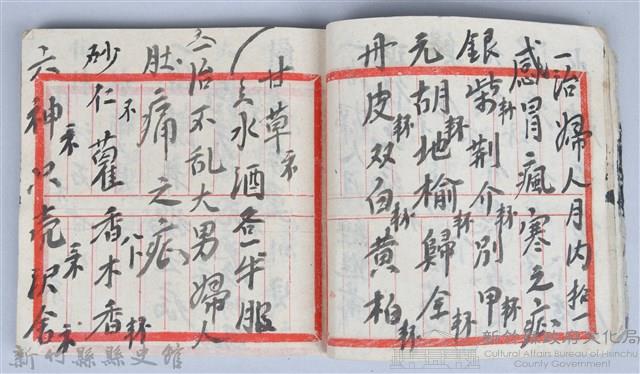 一治婦人月内拾一
感冒瘋寒之症
銀柴荆介別甲
元胡地榆歸全
丹皮双白黄柏
甘草
水酒各一半服
一治不乱大男婦人
肚痛之症
砂仁藿香木香
六神只壳沢舍
新竹縣縣史館
新竹縣政府文化局
Cultural Affairs Bureau of Hsinchu
County Government